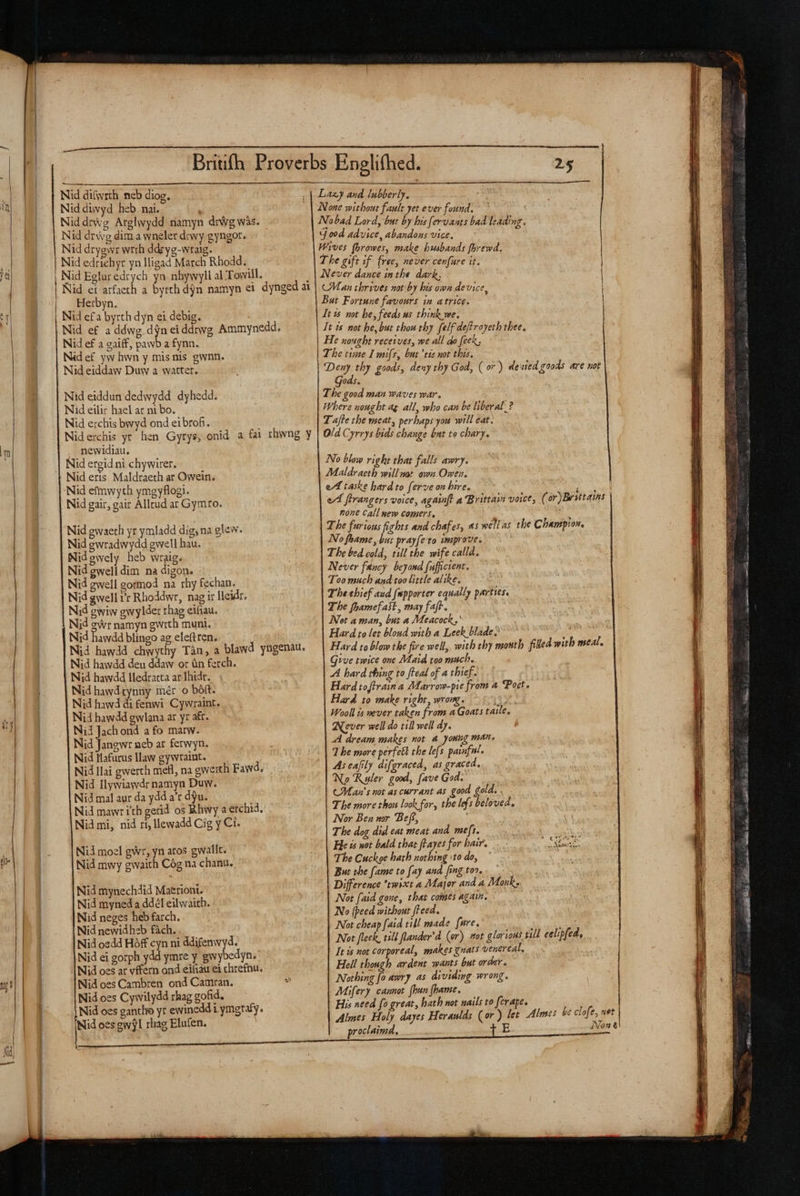 Britiſh Proverbs Engliſhed. 25
Nid diſwrth neb diog.
Nid diwyd heb nai.
Nid drwg Arglwydd namyn drŵg wàs.
Nid drŵg dim a wneler drwy gyngor.
Nid drygwr wrth ddryg-wraig.
Nid edrichyr yn lligad March Rhodd.
Nid Eglur edrych yn nhywyll al Towill.
Nid er arfaeth a byrth dŷn namyn ei dynged ai
Herbyn.
Nid ef a byrth dyn ei debig.
Nid ef a ddwg dŷn ei ddrwg Ammynedd.
Nid ef a gaiff, pawb a fynn.
Nid ef yw hwn y mis nis gwnn.
Nid eiddaw Duw a watter.
Nid eiddun dedwydd dyhedd.
Nid eilir hael ar ni bo.
Nid erchis bwyd ond ei brofi.
Nid erchis yr hen Gyrys, onid a fai rhwng y
newidiau.
Nid ergid ni chywirer.
Nid eris Maldraeth ar Owein.
Nid eſmwyth ymgyflogi.
Nid gair, gair Alltud ar Gymro.
Nid gwaeth yr ymladd dig, na glew.
Nid gwradwydd gwell hau.
Nid gwely heb wraig.
Nid gwell dim na digon.
Nid gwell gormod na rhy fechan.
Nid gwell i'r Rhoddwr, nag ir lleidr.
Nid gwiw gwylder rhag eiſiau.
Nid gŵr namyn gwrth muni.
Nid hawdd blingo ag eleſtren.
Nid hawdd chwythy Tàn, a blawd yngenau.
Nid hawdd deu ddaw or ùn ferch.
Nid hawdd lledratta ar lhidr.
Nid hawd tynny mêr o bôſt.
Nid hawd di fenwi Cywraint.
Nid hawdd gwlana ar yr afr.
Nid Jach ond a fo marw.
Nid Jangwr neb ar ferwyn.
Nid llafurus llaw gywraint.
Nid llai gwerth meſl, na gwerth Fawd.
Nid llywiawdr namyn Duw.
Nid mal aur da ydd a'r dŷu.
Nid mawr i'th gerid os Rhwy a erchid.
Nid mi, nid ri, llewadd Cig y Ci.
Nid moel gŵr, yn aros gwallt.
Nid mwy gwaith Côg na chanu.
Nid mynechdid Maerioni.
Nid myned a ddêl eilwaith.
Nid neges heb farch.
Nid newid heb fâch.
Nid oedd Hôff cyn ni ddifenwyd.
Nid ei gorph ydd ymre y gwybedyn.
Nid oes ar vffern ond eiſiau ei chrefnu.
Nid oes Cambren ond Camran.
Nid oes Cywilydd rhag gofid.
Nid oes gantho yr ewinedd i ymgrafy.
Nid oes gwŷl rhag Eluſen.
Lazy and lubberly.
None without fault yet ever found.
No bad Lord, but by his ſervants bad leading.
Good advice, abandons vice.
Wives ſhrowes, make husbands ſhrewd.
The gift if free, never cenſure it.
Never dance in the dark.
Man thrives not by his own device,
But Fortune favours in a trice.
It is not he, feeds us think we.
It is not he, but thou thy ſelf deſtroyeth thee.
He nought receives, we all do ſeek,
The time I miſs, but 'tis not this.
Deny thy goods, deny thy God, (or) denied goods are not
Gods.
The good man waves war.
Where nought ag all, who can be liberal?
Taſte the meat, perhaps you will eat.
Old Cyrrys bids change but to chary.
No blow right that falls awry.
Maldraeth will not own Owen.
A taske hard to ſerve on hire.
A ſtrangers voice, againſt a Brittain voice, (or) Brittains
none call new comers.
The furious fights and chafes, as well as the Champion.
No ſhame, but prayſe to improve.
The bed cold, till the wife calld.
Never fancy beyond ſufficient.
Too much and too little alike.
The thief and ſupporter equally parties.
The ſhamefaſt, may faſt.
Not a man, but a Meacock.
Hard to let bloud with a Leek blade.
Hard to blow the fire well, with thy mouth filled with meal.
Give twice one Maid too much.
A hard thing to ſteal of a thief.
Hard to ſtrain a Marrow-pie from a Poſt.
Hard to make right, wrong.
Wooll is never taken from a Goats taile.
Never well do till well dy.
A dream makes not a young man.
The more perfect the leſs painful.
As eaſily diſgraced, as graced.
No Ruler good, ſave God.
Man's not as currant as good gold.
The more thou look for, the leſs beloved.
Nor Ben nor Beſſ,
The dog did eat meat and meſs.
He is not bald that ſtayes for hair.
The Cuckoe hath nothing to do,
But the ſame to ſay and ſing too.
Difference 'twixt a Major and a Monk.
Not ſaid gone, that comes again.
No ſpeed without ſteed.
Not cheap ſaid till made ſure.
Not fleck, till ſlander'd (or) not glorious till eclipſed.
It is not corporeal, makes gnats venereal.
Hell though ardent wants but order.
Nothing ſo awry as dividing wrong.
Miſery cannot ſhun ſhame.
His need ſo great, hath not nails to ſcrape.
Almes Holy dayes Heraulds (or) let Almes be cloſe, not
proclaimd. † E None